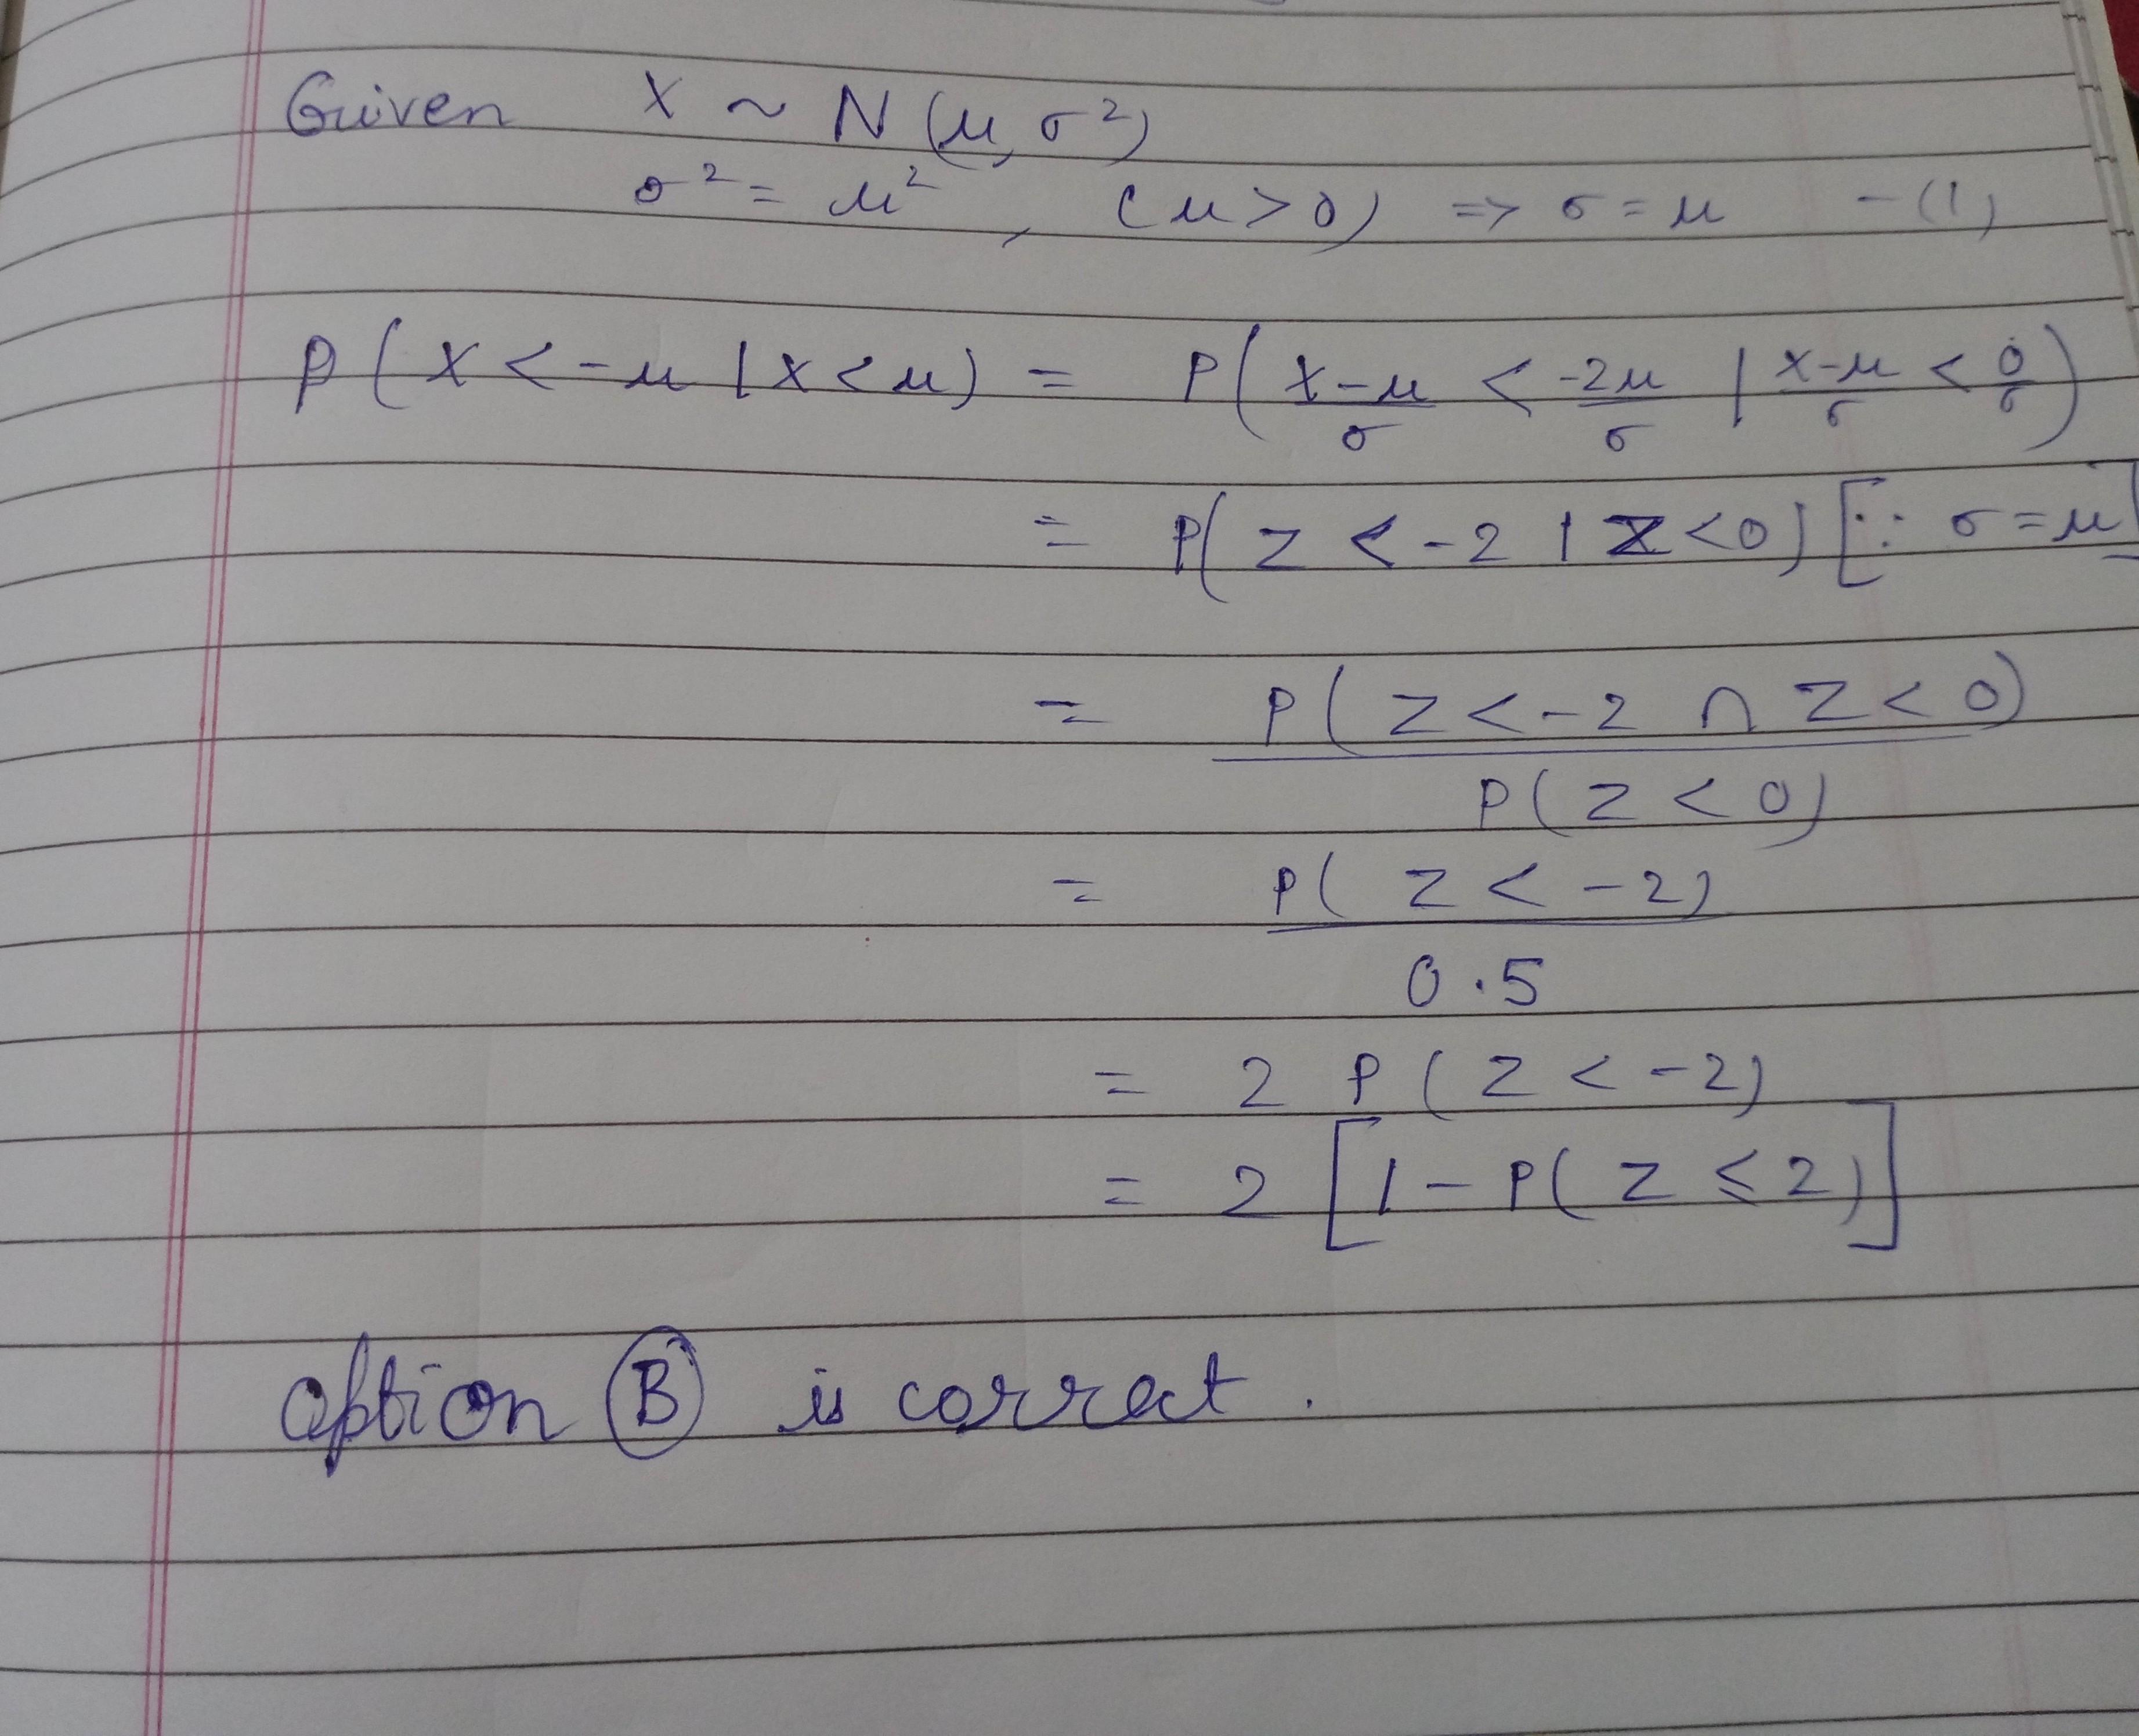 Given X ~ N(μ, σ²)
σ² = μ², (μ>0) => σ = μ -(1)
P(X < -μ | X < μ) = P((X-μ)/σ < -2μ/σ | (X-μ)/σ < 0/σ)
= P(Z < -2 | Z < 0) [∵ σ = μ]
= P(Z < -2 ∩ Z < 0)
P(Z < 0)
= P(Z < -2)
0.5
= 2 P(Z < -2)
= 2 [1 - P(Z ≤ 2)]
option (B) is correct.